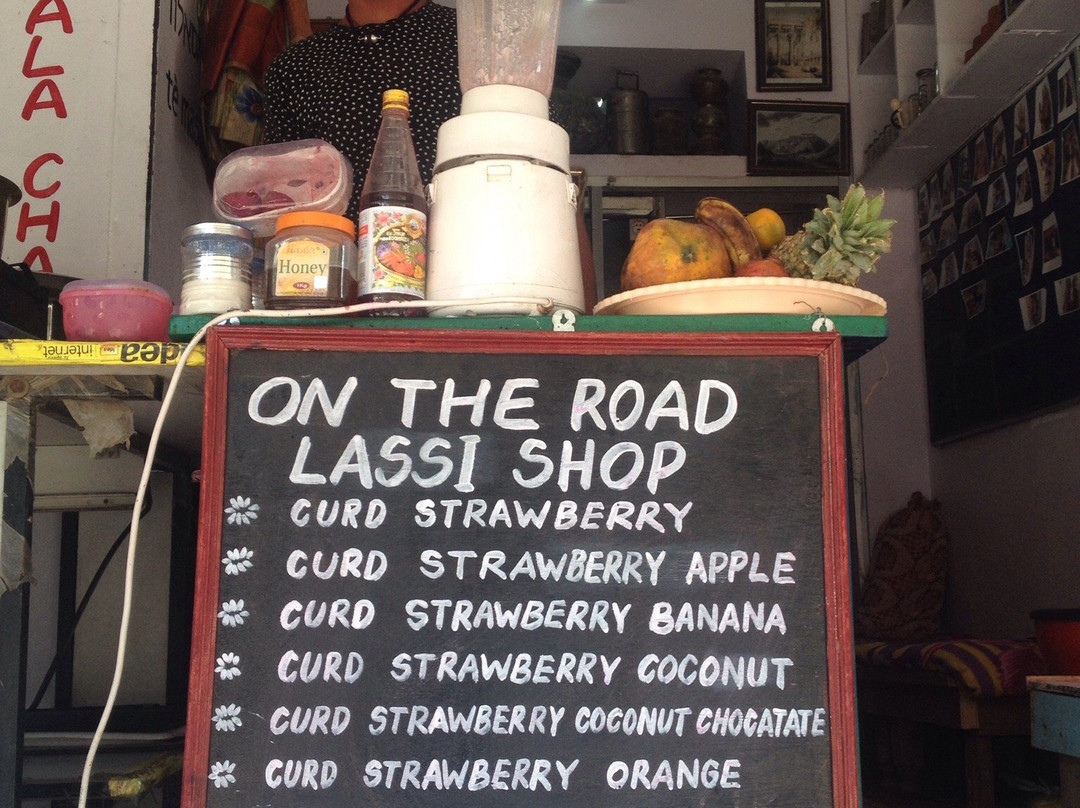 ALA
CHA
Honey
internet
idea
ON THE ROAD
LASSI SHOP
CURD STRAWBERRY
CURD STRAWBERRY APPLE
CURD STRAWBERRY BANANA
CURD STRAWBERRY COCONUT
CURD STRAWBERRY COCONUT CHOCATATE
CURD STRAWBERRY ORANGE